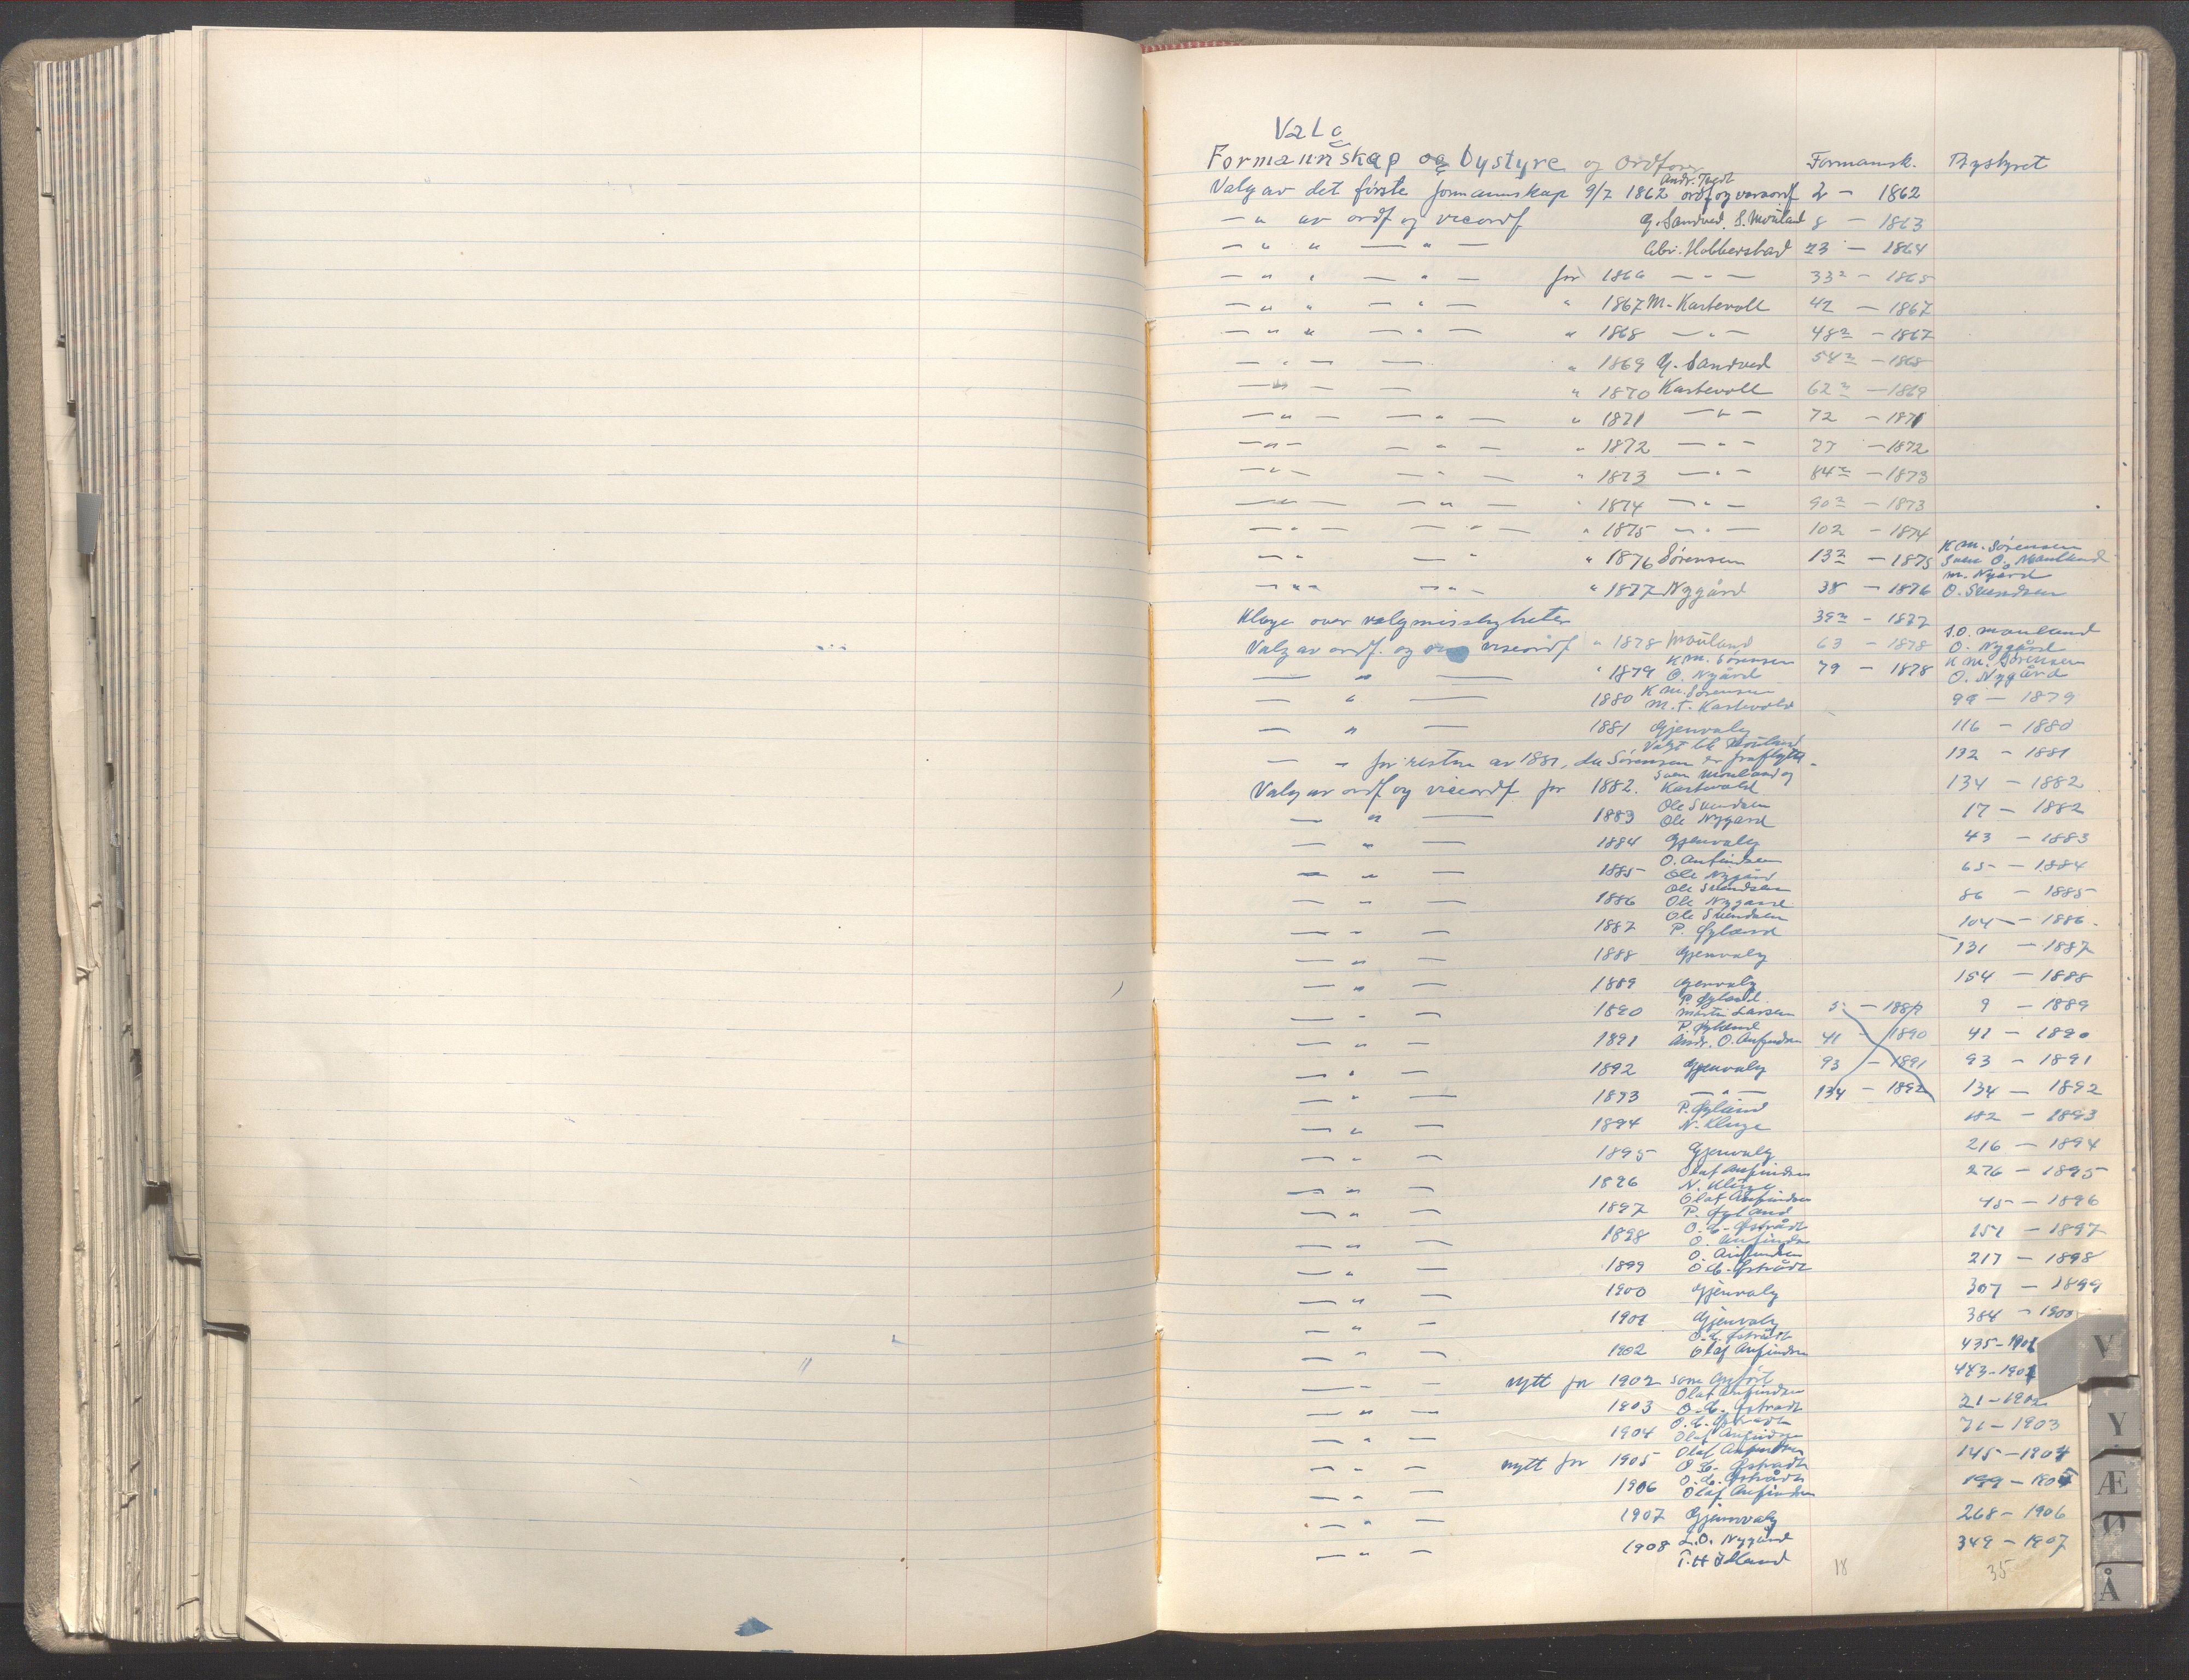 Valg
Formannskap og bystyre og ordfører Formansk. Bystyret
Valg av det første formannskap 9/7 1862 Andr. Tvedt ordf og varaordf 2 - 1862
- " av ordf og viceordf G. Sandved, S. Mouland 8 - 1863
- " " - " - Hobberstad 23 - 1864
- " " - " - for 1866 - " - 33 2 - 1865
- " " - " - " 1867 M. Kartevoll 42 - 1867
- " " - " - " 1868 - " - 48 2 - 1867
- " - - " 1869 G. Sandved 54 2 - 1868
- " - - " 1870 Kartevoll 62 2 - 1869
- " - - " - " 1871 - " - 72 - 1871
- " - - " - " 1872 - " - 77 - 1872
- " - - " - " 1873 - " - 84 2 - 1873
- " - - " - " 1874 - " - 90 2 - 1873
- " - - " - " 1875 - " - 102 - 1874
- " - " " 1876 Sørensen 132 - 1875 K M. Sørensen Sven O. Mauland
- " " - " - " 1877 Nygård 38 - 1876 M. Nyård O. Svendsen
Klage over valgmissligheter 39 2 - 1877
Valg av ordf. og viseordf " 1878 Mauland 63 - 1878 S.O. Mauland O. Nygård
- " - " 1879 K.M. Sørensen O. Nyård 79 - 1878 K M. Sørensen O. Nygård
- " - 1880 K M. Sørensen M. T. Kartevold 99 - 1879
- " - 1881 Gjenvalg 116 - 1880
- " for resten av 1881, da Sørensen er fraflyttet. Valgt ble Mauland 132 - 1881
Valg av ordf og viceordf for 1882. Sven Mouland og Kartevold 134 - 1882
- " - 1883 Ole Svendsen Ole Nygård 17 - 1882
- " - 1884 Gjenvalg 43 - 1883
- " - 1885 O. Anfindsen Ole Nygård 65 - 1884
- " - 1886 Ole Svendsen Ole Nygaard 86 - 1885
- " - 1887 Ole Svendsen P. Øgland 104 - 1886.
- " - 1888 Gjenvalg 131 - 1887
- " - 1889 Gjenvalg 154 - 1888
- " - 1890 P. Øgland. Martin Larsen 5 - 1889 9 - 1889
- " - 1891 P. Øgland Andr. O. Anfindsen 41 - 1890 41 - 1890
- " - 1892 Gjenvalg 93 - 1891 93 - 1891
- " - 1893 - " - 134 - 1892 134 - 1892
- " - 1894 P. Øgland N. Kluge 182 - 1893
- " - 1895 Gjenvalg 216 - 1894
- " - 1896 Olaf Anfindsen N. Kluge 276 - 1895
- " - 1897 Olaf Anfindsen P. Øgland 45 - 1896
- " - 1898 O. C. Østrådt O. Anfindsen 151 - 1897
- " - 1899 O. Anfindsen O. C. Østrådt 217 - 1898
- " - 1900 Gjenvalg 307 - 1899
- " - 1901 Gjenvalg 384 - 1900
- " - 1902 O. C. Østrådt Olaf Anfindsen 435 - 1901
- " - nytt for 1902 som anført 443 - 1901
- " - 1903 Olaf Anfindsen O. C. Østradt 21 - 1902
- " - 1904 O. C. Østradt Olaf Anfindsen 71 - 1903
- " - nytt for 1905 Olaf Anfindsen O. C. Østradt 145 - 1904
- " - 1906 O. C. Østrådt Olaf Anfindsen 199 - 1905
- " - 1907 Gjenvalg 268 - 1906
- " - 1908 L.O. Nygård T. H 349 - 1907
18 35
V
Y
Æ
Å